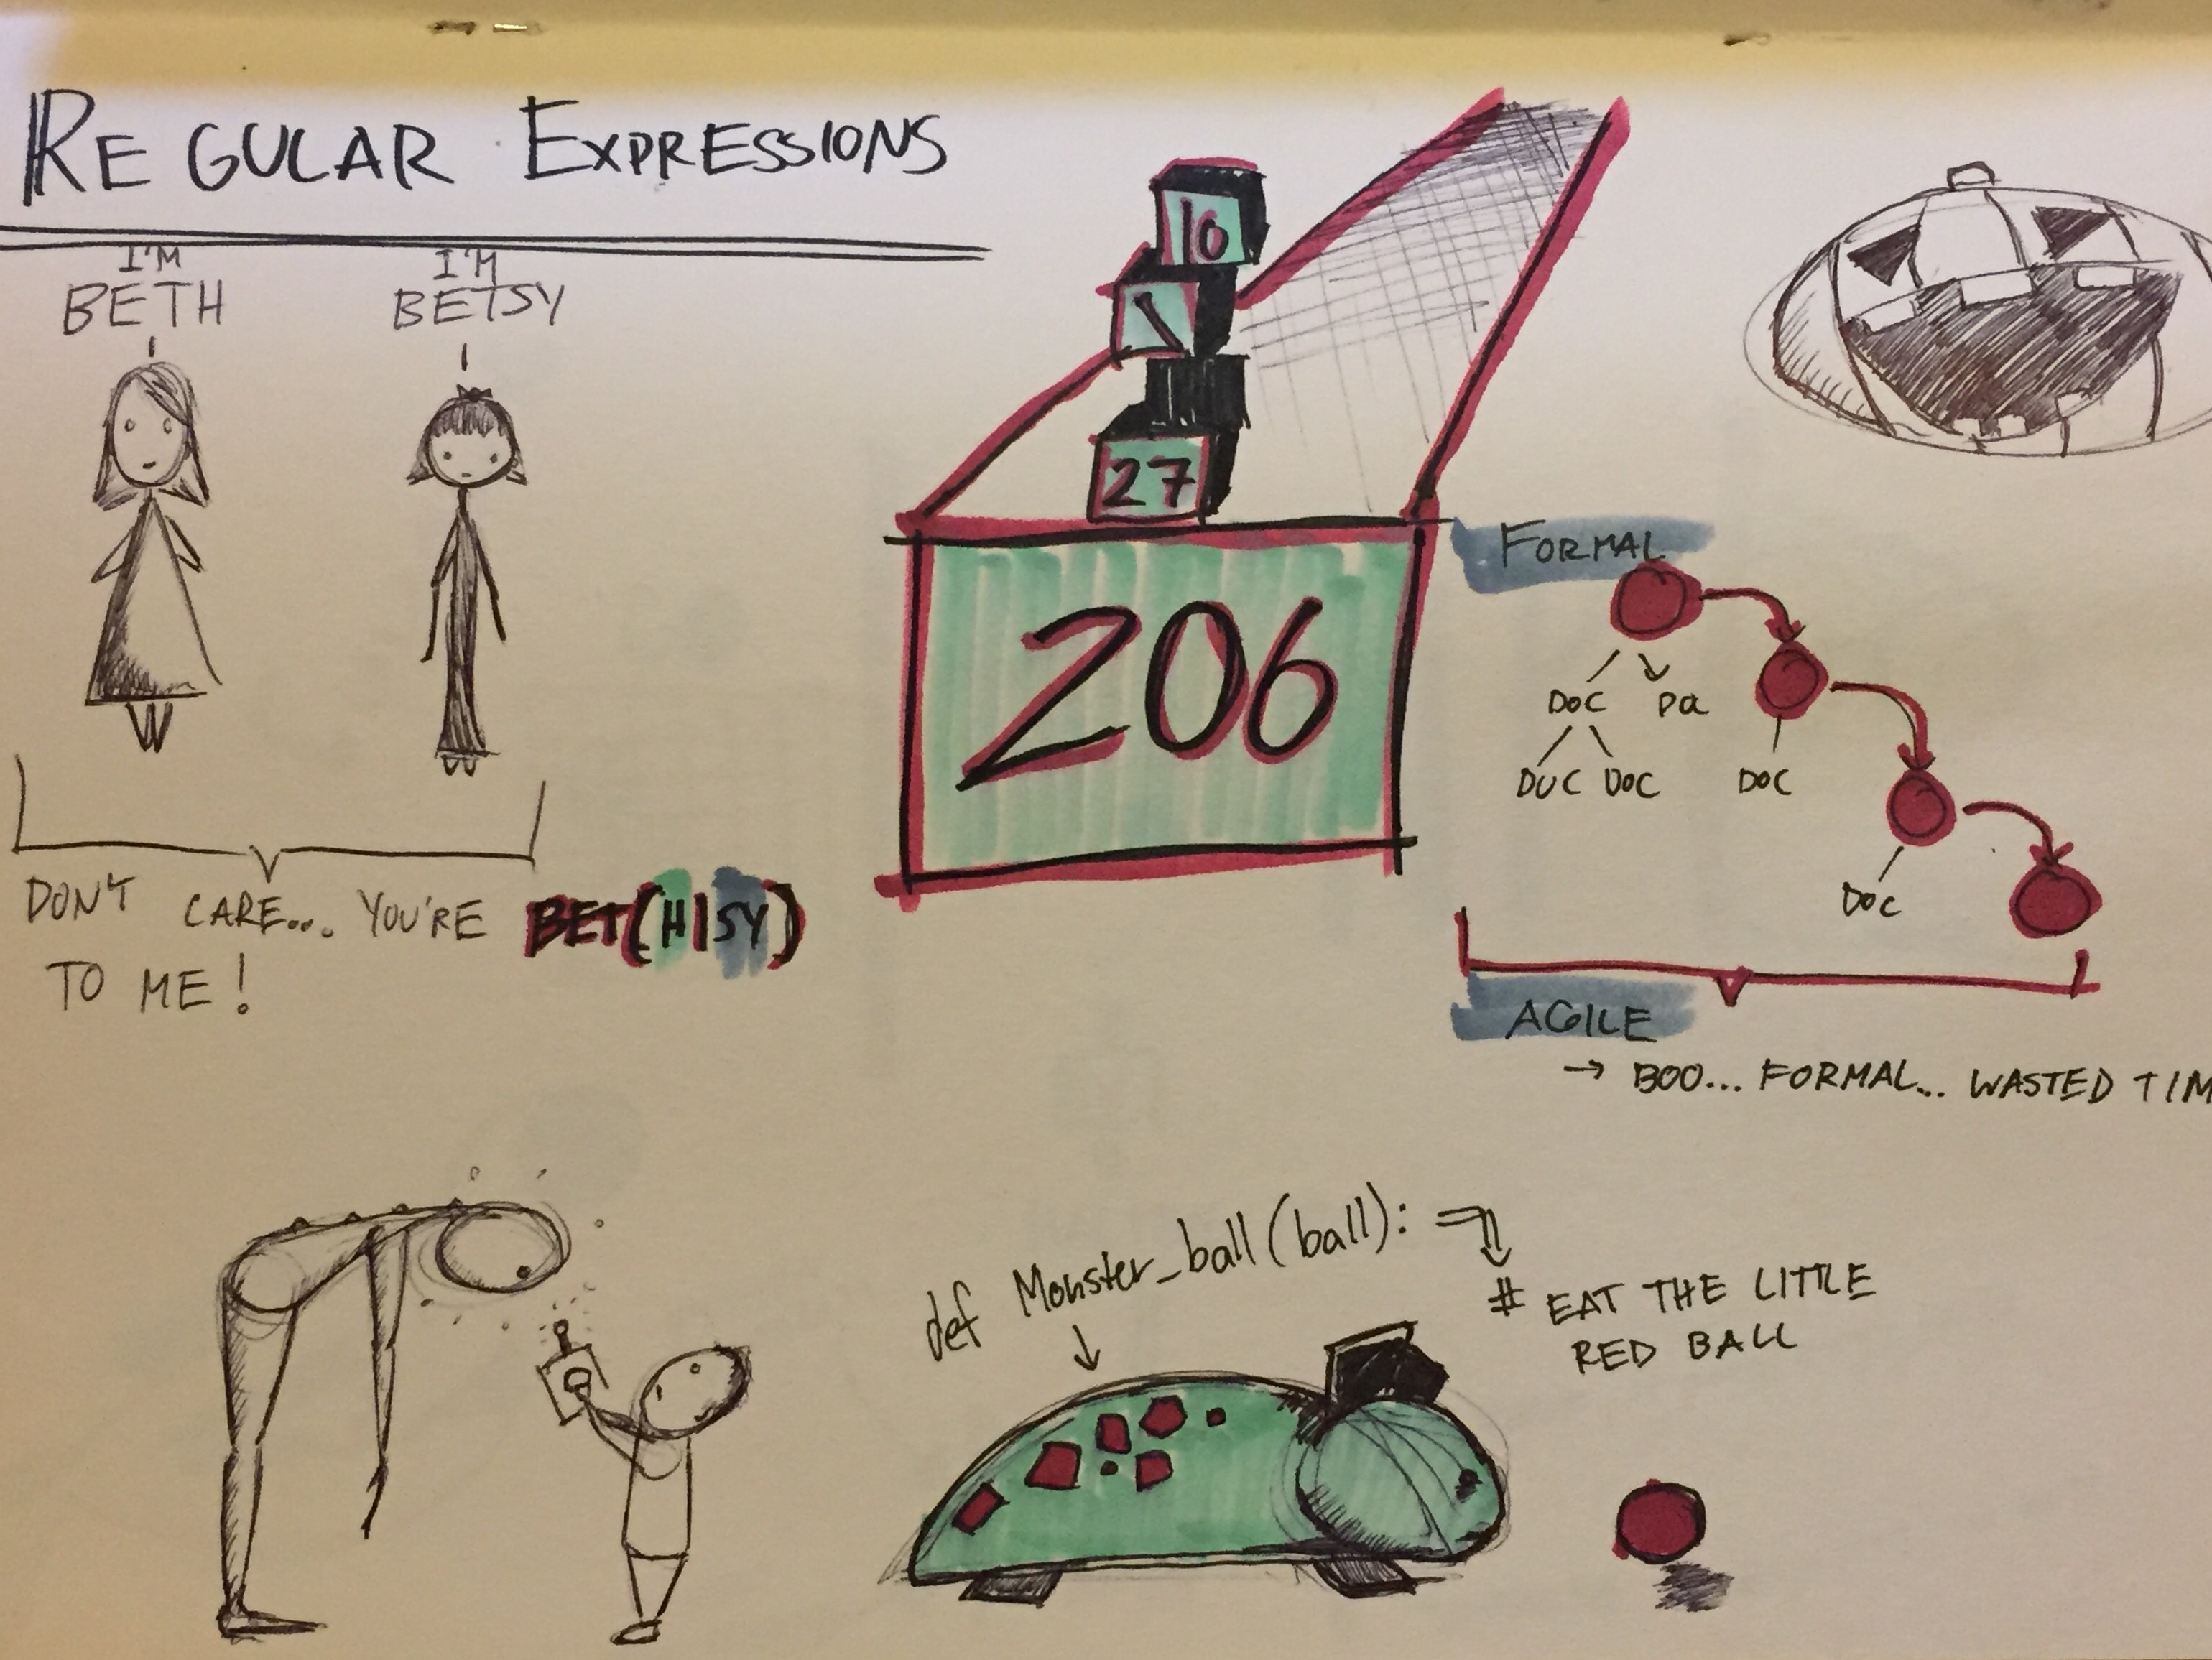 REGULAR EXPRESSIONS
I'M
BETH
I'M
BETSY
DON'T CARE... YOU'RE BET(H|SY)
TO ME!
10
1
27
206
FORMAL
DOC
DUC DOC
DOC
DOC
AGILE
→ BOO... FORMAL... WASTED TIM
def Monster_ball(ball):
# EAT THE LITTLE
RED BALL